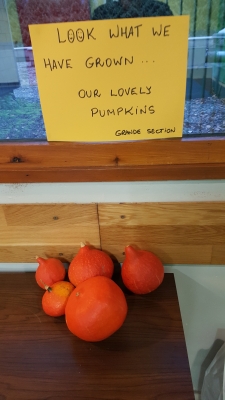 LOOK WHAT WE
HAVE GROWN ...
OUR LOVELY
PUMPKINS
GRANDE SECTION